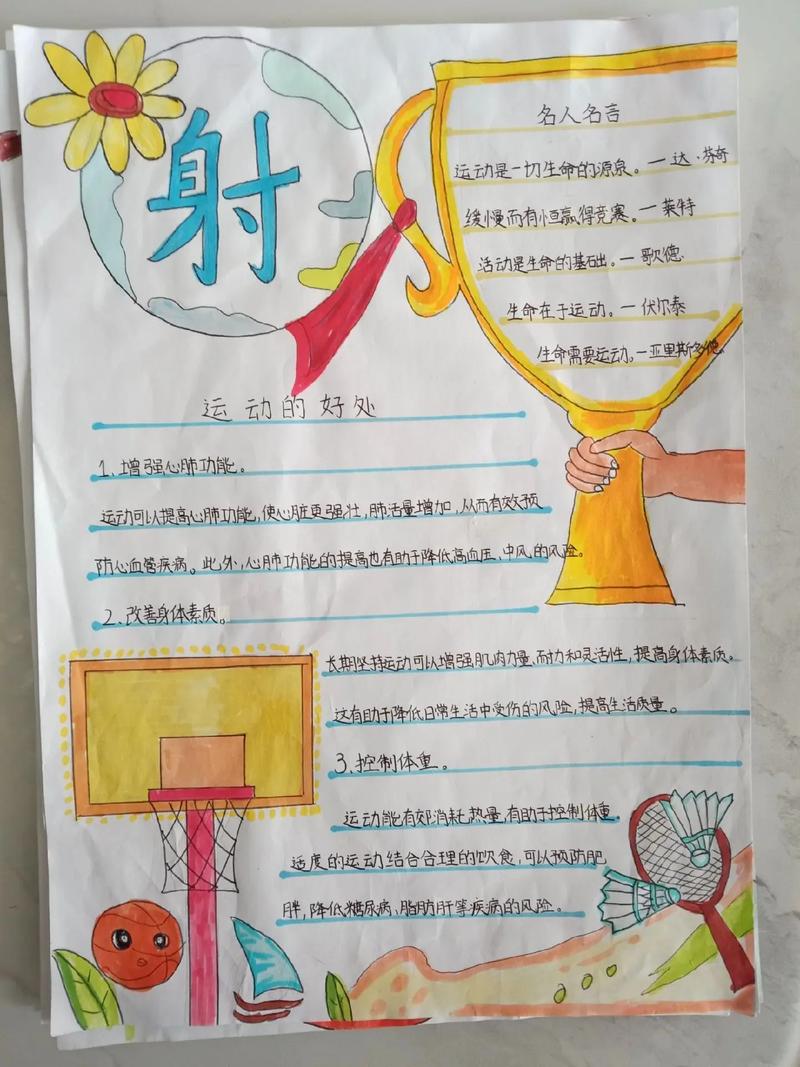 射
名人名言
运动是一切生命的源泉。—达·芬奇
缓慢而有恒赢得竞赛。—莱特
活动是生命的基础。—歌德
生命在于运动。—伏尔泰
生命需要运动。—亚里斯多德
运动的好处
1、增强心肺功能。
运动可以提高心肺功能,使心脏更强壮,肺活量增加,从而有效预
防心血管疾病。此外,心肺功能的提高也有助于降低高血压、中风的风险。
2、改善身体素质。
长期坚持运动可以增强肌肉力量、耐力和灵活性,提高身体素质。
这有助于降低日常生活中受伤的风险,提高生活质量。
3、控制体重。
运动能有效消耗热量,有助于控制体重。
适度的运动结合合理的饮食,可以预防肥
胖,降低糖尿病、脂肪肝等疾病的风险。